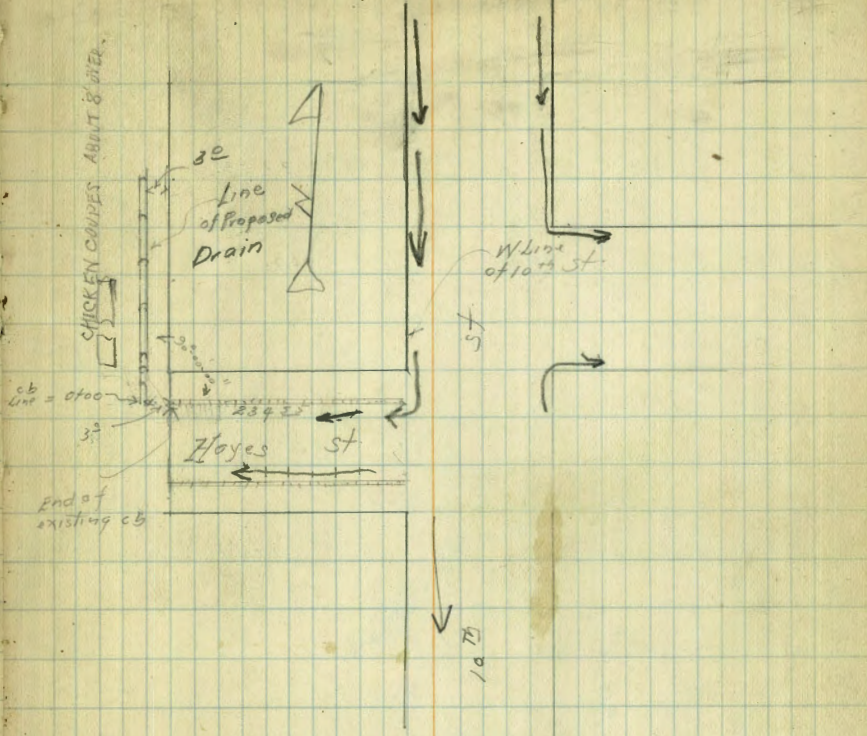 CHICKEN COUPES ABOUT 8' OVER.
3º
Line
of Proposed
Drain
N
W Line
of 10th St.
St
cb
Line = 0+00
3º
Hayes St
End of
existing cb
10 TH